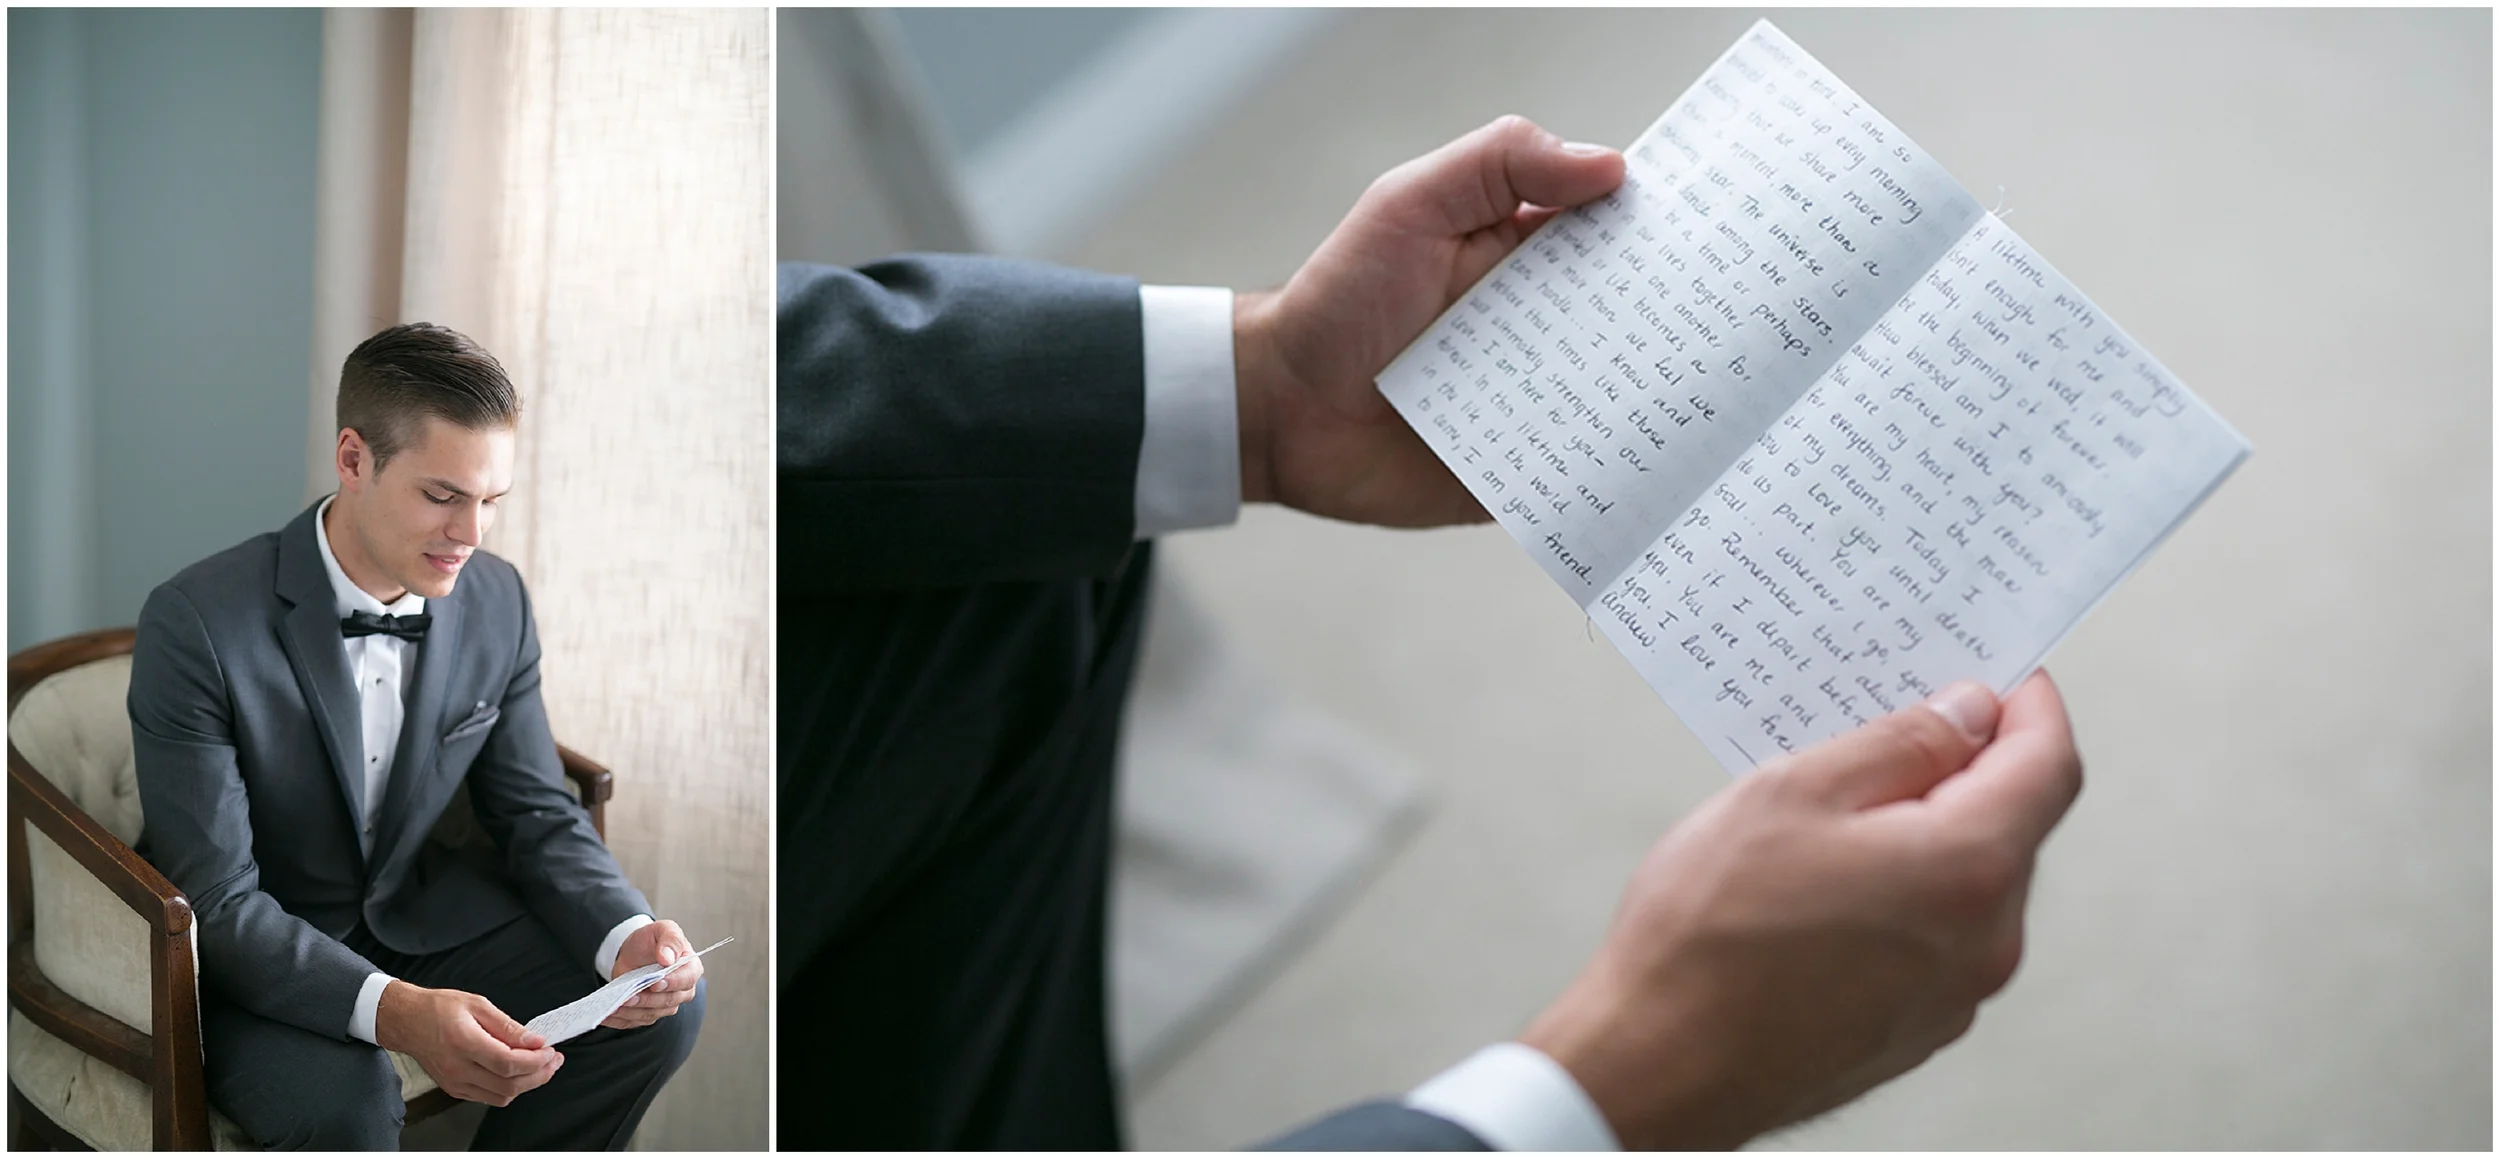 in time. I am so
blessed to wake up every morning
knowing that we share more
than a moment, more than a
star. The universe is
to dance among the stars.
will be a time or perhaps
in our lives together
when we take one another for
granted or life becomes a
little more than we feel we
can handle... I know and
believe that times like these
will ultimately strengthen our
love. I am here for you-
forever. In this lifetime and
in the life of the world
to come, I am your friend.
A lifetime with you simply
isn't enough for me and
today, when we wed, it will
be the beginning of forever.
How blessed am I to anxiously
await forever with you?
You are my heart, my reason
for everything, and the man
of my dreams. Today I
vow to love you until death
do us part. You are my
soul... wherever I go, you
go. Remember that
even if I depart before
you. You are me and
you. I love you
Andrew.